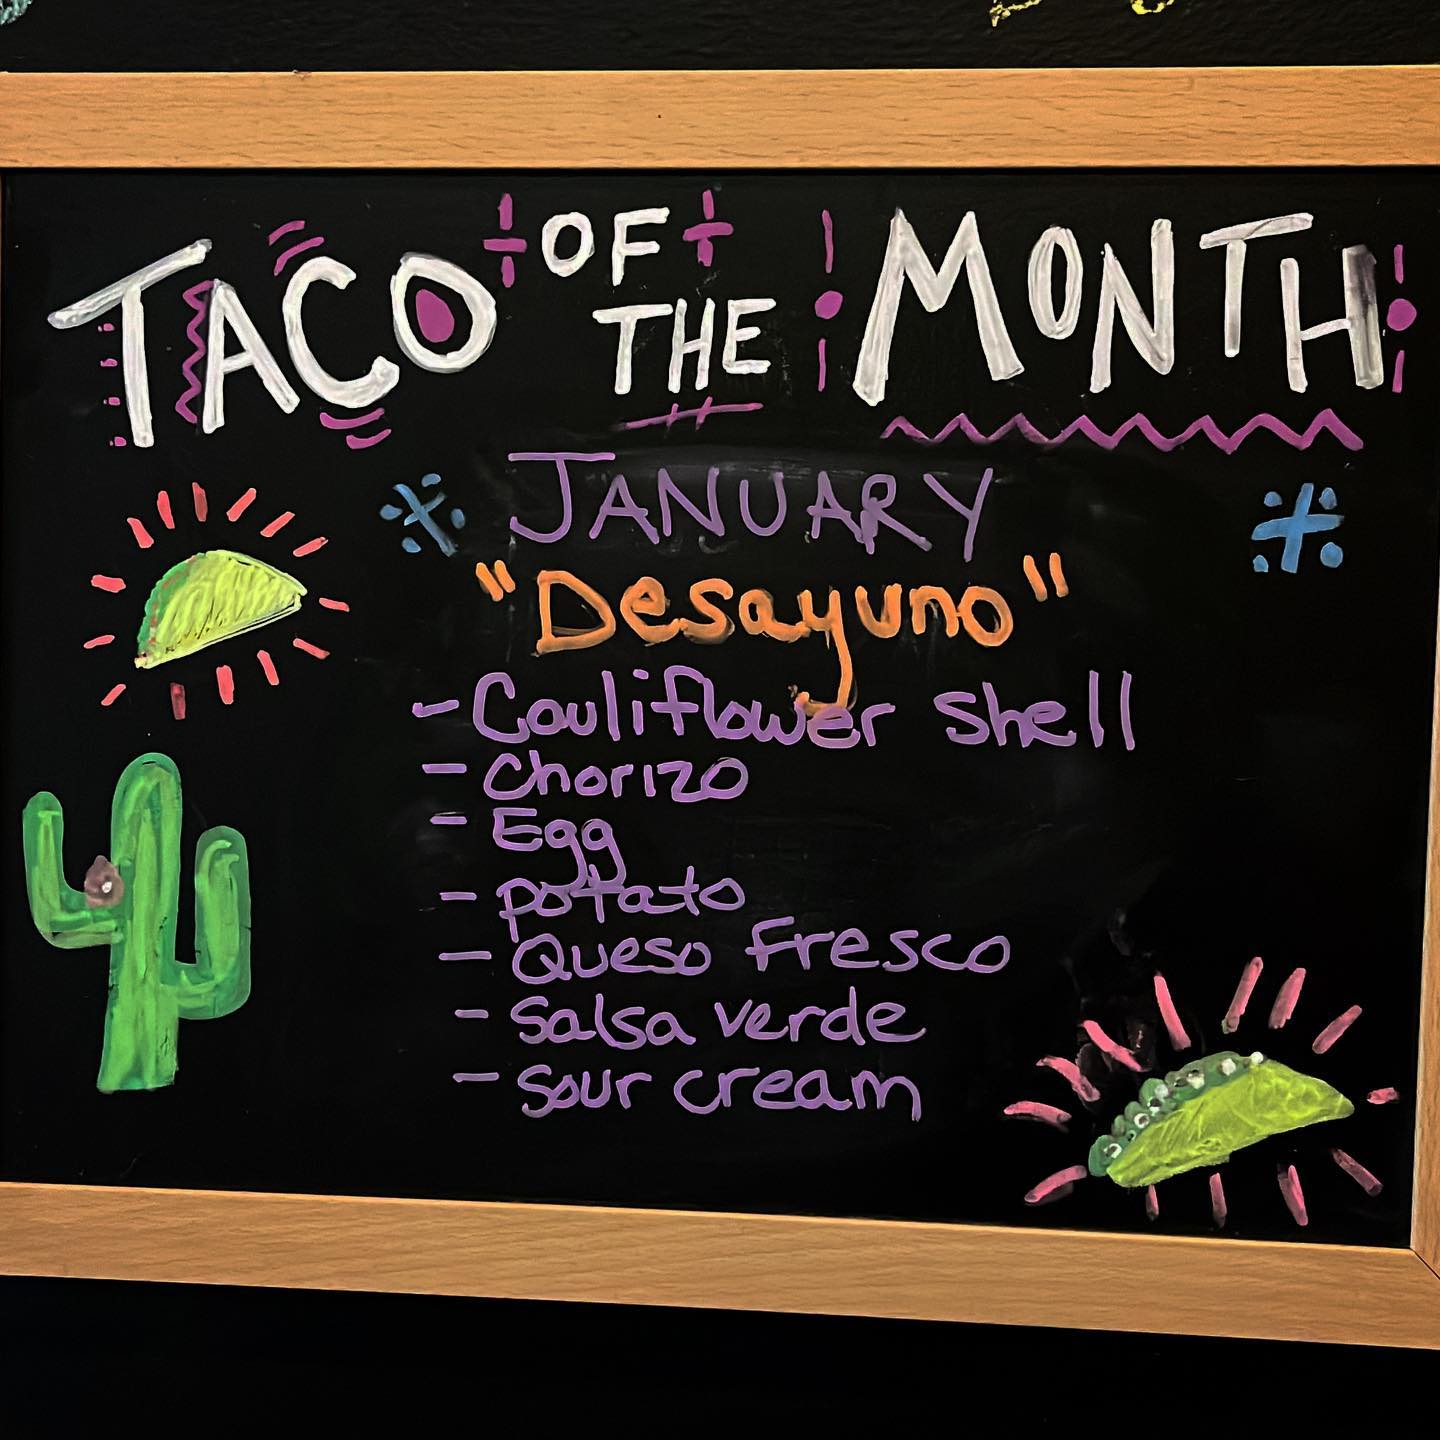 TACO OF THE MONTH
JANUARY
"Desayuno"
- Cauliflower shell
- Chorizo
- Egg
- potato
- Queso Fresco
- Salsa verde
- sour cream